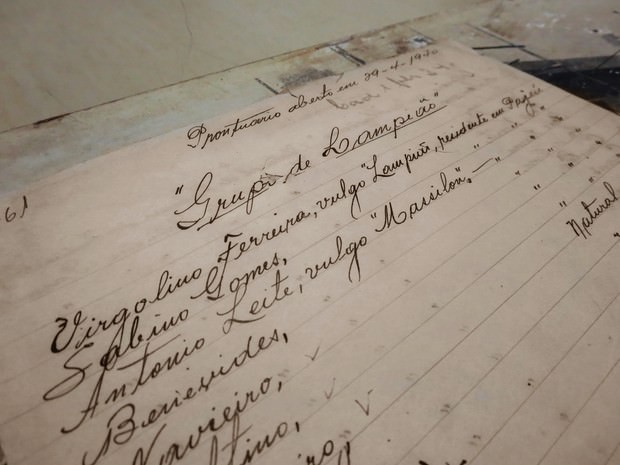 Prontuario aberto em 29-4-1940
"Grupo de Lampeão"
61
Virgolino Ferreira, vulgo "Lampeão, residente em Pageú
Sabino Gomes, " " "
Antonio Leite, vulgo "Massilon", — " " "
Benevides, Natural
Navieiro,